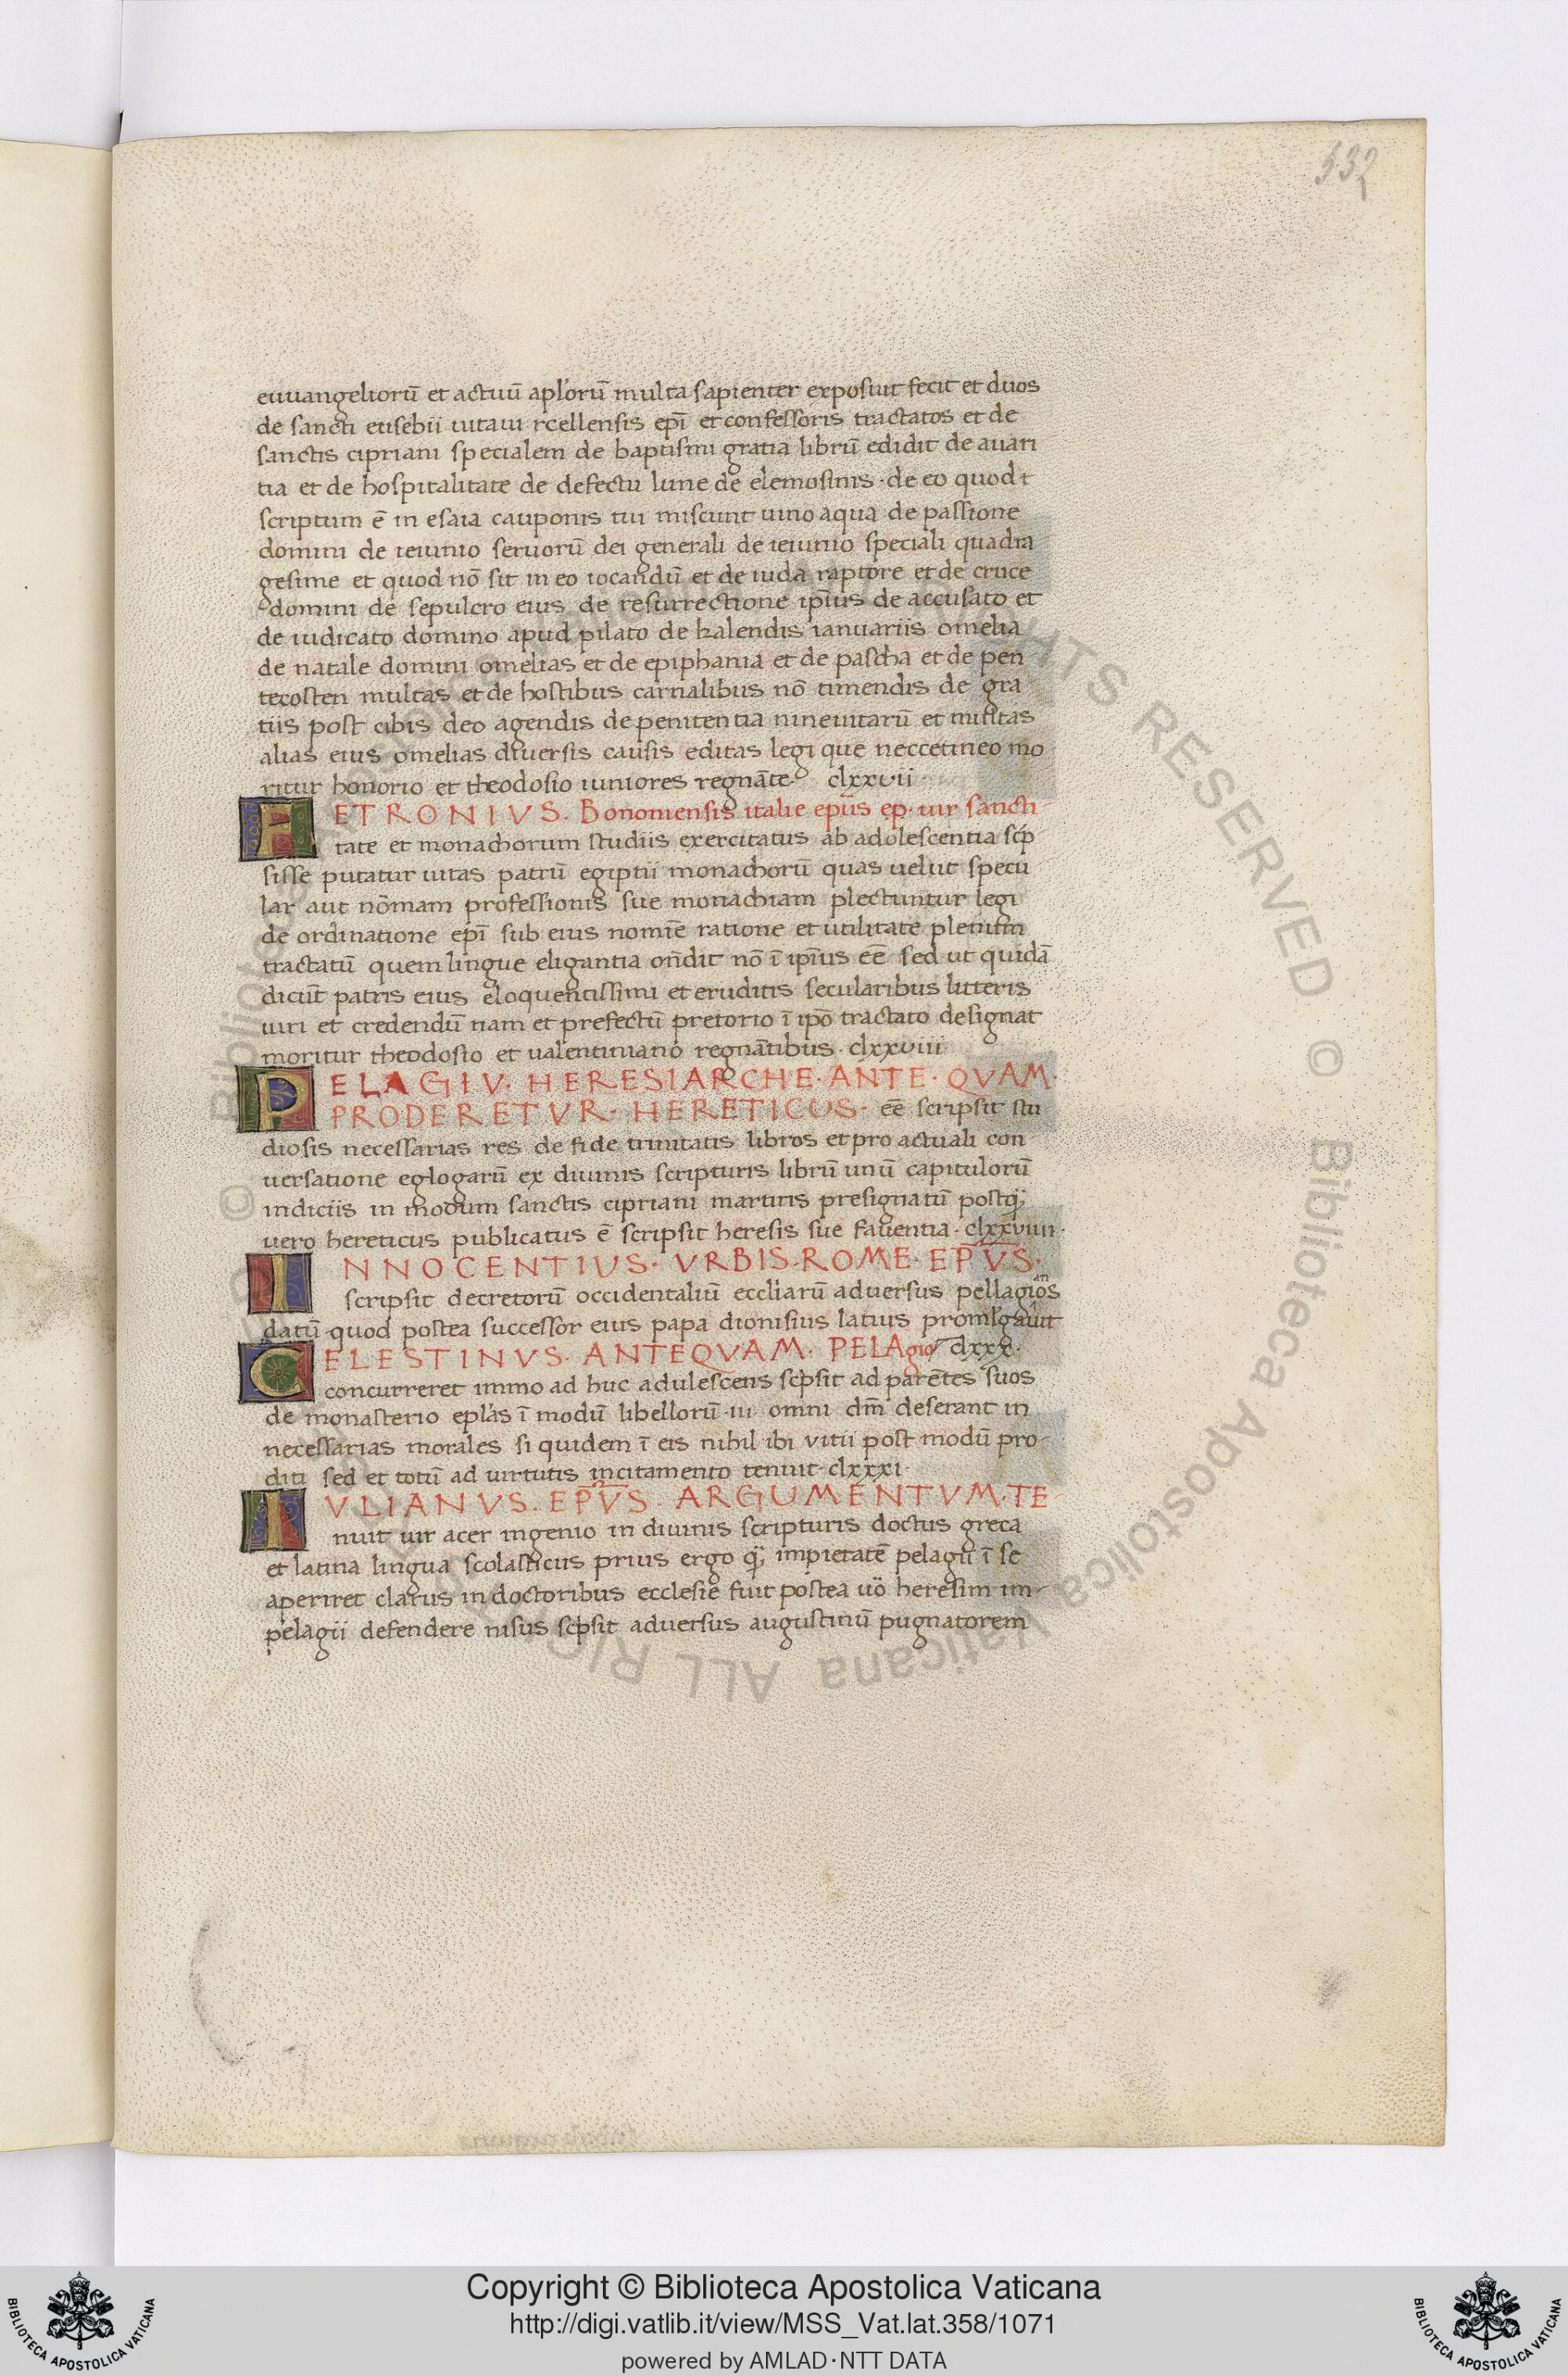 532
euuangeliorū et actuū apl'orū multa sapienter exposuit fecit et duos
de sancti eusebii uitaui rcellensis ep̄i et confessoris tractatos et de
sanctis cipriani specialem de baptismi gratia librū edidit de auari
tia et de hospitalitate de defectu lune de elemosinis · de eo quod t
scriptum ē in esaia cauponis tui miscunt uino aqua de passione
domini de ieiunio seruorū dei generali de ieiunio speciali quadra
gesime et quod nō sit in eo iocandū et de iuda raptore et de cruce
domini de sepulcro eius de resurrectione ip̄ius de accusato et
de iudicato domino apud pilato de kalendis ianuariis omelia
de natale domini omelias et de epiphania et de pascha et de pen
tecosten multas et de hostibus carnalibus nō timendis de gra
tiis post cibis deo agendis de penitentia nineuitarū et multas
alias eius omelias diuersis causis editas legi que neccetineo mo
ritur honorio et theodosio iuniores regnāte · clxxvii
ETRONIVS. Bononiensis italie ep̄iis ep · uir sancti
tate et monachorum studiis exercitatus ab adolescentia scp̄
sisse putatur uitas patrū egiptii monachorū quas uelut specu
lar aut nōmam professionis sue monachiam plectuntur legi
de ordinatione ep̄i sub eius nomīe ratione et utilitate plenum
tractatū quem lingue eligantia on̄dit nō ī ip̄ius eē sed ut quidā
dicūt patris eius eloquentissimi et eruditis secularibus litteris
uiri et credendū nam et prefectū pretorio ī ip̄o tractato designat
moritur theodosio et ualentiniano regnātibus · clxxviii
PELAGIV · HERESIARCHE · ANTE · QVAM ·
PRODERETVR · HERETICUS · eē scripsit stu
diosis necessarias res de fide trinitatis libros et pro actuali con
uersatione eglogarū ex diuinis scripturis librū unū capitulorū
indiciis in modum sanctis cipriani martiris presignatū postq̄;
uero hereticus publicatus ē scripsit heresis sue fauentia · clxxviiii ·
INNOCENTIUS · VRBIS · ROME · EP̄VS ·
scripsit decretorū occidentaliū eccliarū aduersus pellagianos
datū · quod postea successor eius papa dionisius latius promlgauit
CELESTINVS · ANTEQVAM · PELAgio clxxx ·
concurreret immo ad huc adulescens scp̄sit ad parētes suos
de monasterio epl'as ī modū libellorū · iii · omni dm̄ deserant in
necessarias morales si quidem ī eis nihil ibi vitii post modū pro
diti sed et totū ad uirtutis incitamento tenuit · clxxxi ·
IVLIANVS. EP̄VS. ARGUMENTVM · TE
nuit uir acer ingenio in diuinis scripturis doctus greca
et latina lingua scolasticus prius ergo q̄; impietatē pelagii ī se
aperiret clarus in doctoribus ecclesie fuit postea uō heresim im
pelagii defendere nisus scp̄sit aduersus augustinū pugnatorem
Copyright © Biblioteca Apostolica Vaticana
http://digi.vatlib.it/view/MSS_Vat.lat.358/1071
powered by AMLAD · NTT DATA
BIBLIOTECA APOSTOLICA VATICANA
BIBLIOTECA APOSTOLICA VATICANA